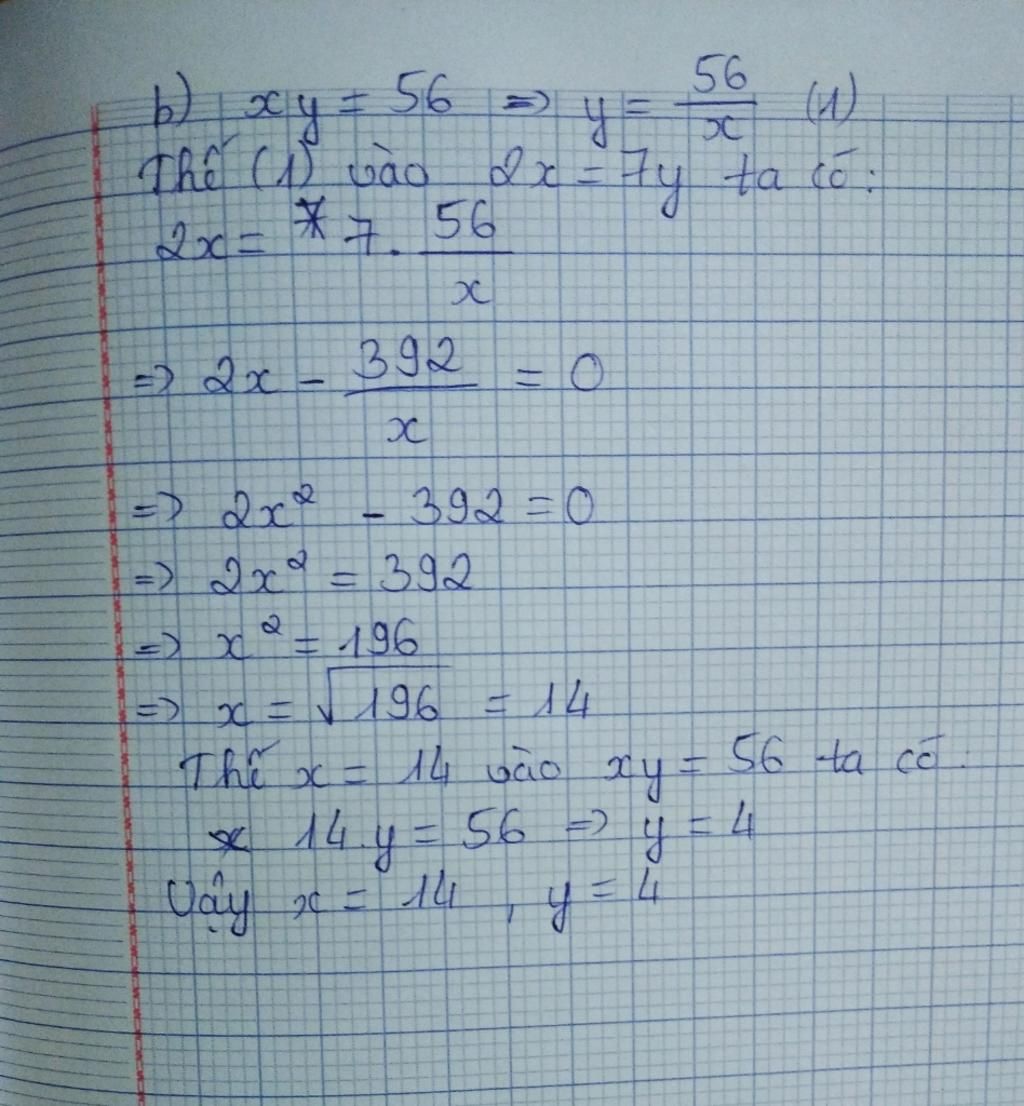 b) xy = 56 => y = 56/x (1)
Thế (1) vào 2x = 7y ta có:
2x = 7 . 56/x
=> 2x - 392/x = 0
=> 2x² - 392 = 0
=> 2x² = 392
=> x² = 196
=> x = √196 = 14
Thế x = 14 vào xy = 56 ta có.
14.y = 56 => y = 4
Vậy x = 14 , y = 4